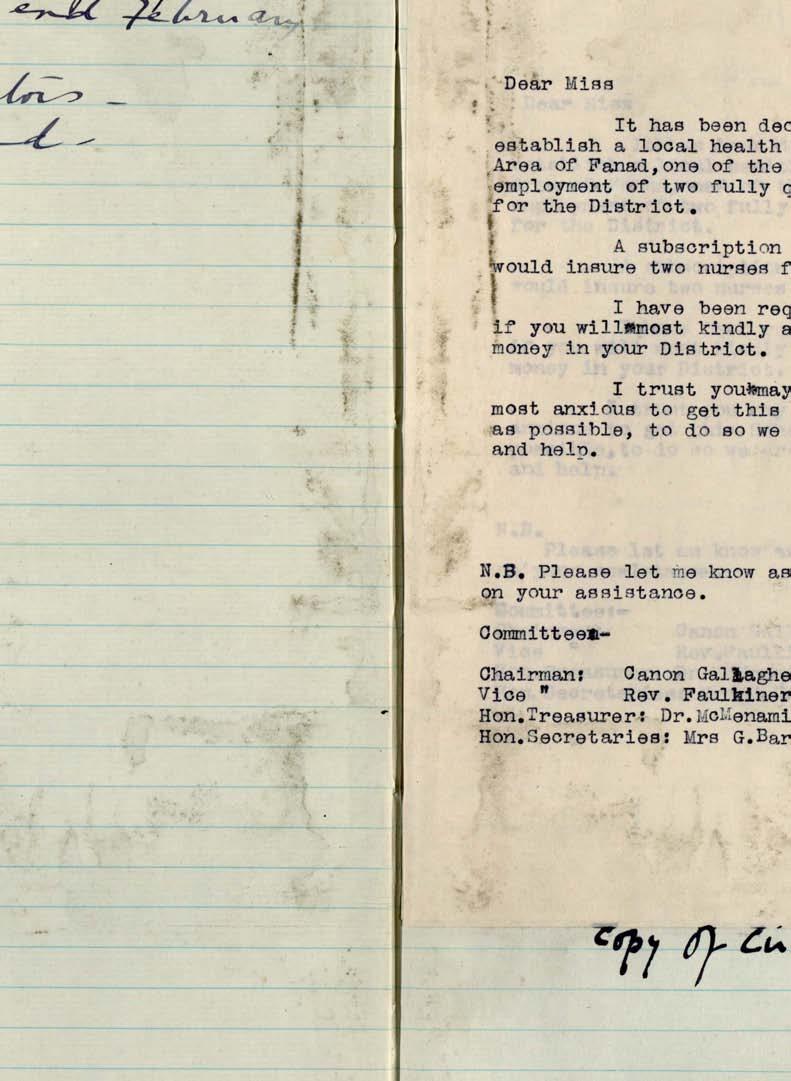 end February
tors -
d -
Dear Miss
It has been dec
establish a local health
Area of Fanad,one of the
employment of two fully q
for the District.
A subscription
would insure two nurses f
I have been req
if you will most kindly a
money in your District.
I trust you may
most anxious to get this
as possible, to do so we
and help.
N.B. Please let me know as
on your assistance.
Committee:-
Chairman: Canon Gallaghe
Vice " Rev. Faulkiner
Hon.Treasurer: Dr.McMenami
Hon.Secretaries: Mrs G.Bar
Copy of Cir